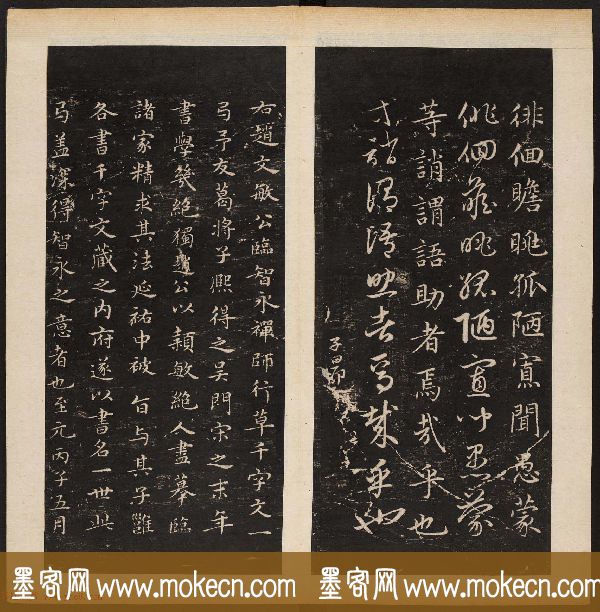 徘徊瞻眺孤陋寡聞愚蒙
徘徊瞻眺孤陋寡聞愚蒙
等誚謂語助者焉哉乎也
等誚謂語助者焉哉乎也
子昂
右趙文敏公臨智永禪師行草千字文一
弓予友葛將子熙得之吳門宋之末年
書學幾絕獨趙公以穎敏絕人盡摹臨
諸家精求其法延祐中被旨与其子雝
各書千字文藏之内府遂以書名一世此
弓盖深得智永之意者也至元丙子五月
墨客网 www.mokecn.com 墨客网 www.mokecn.com